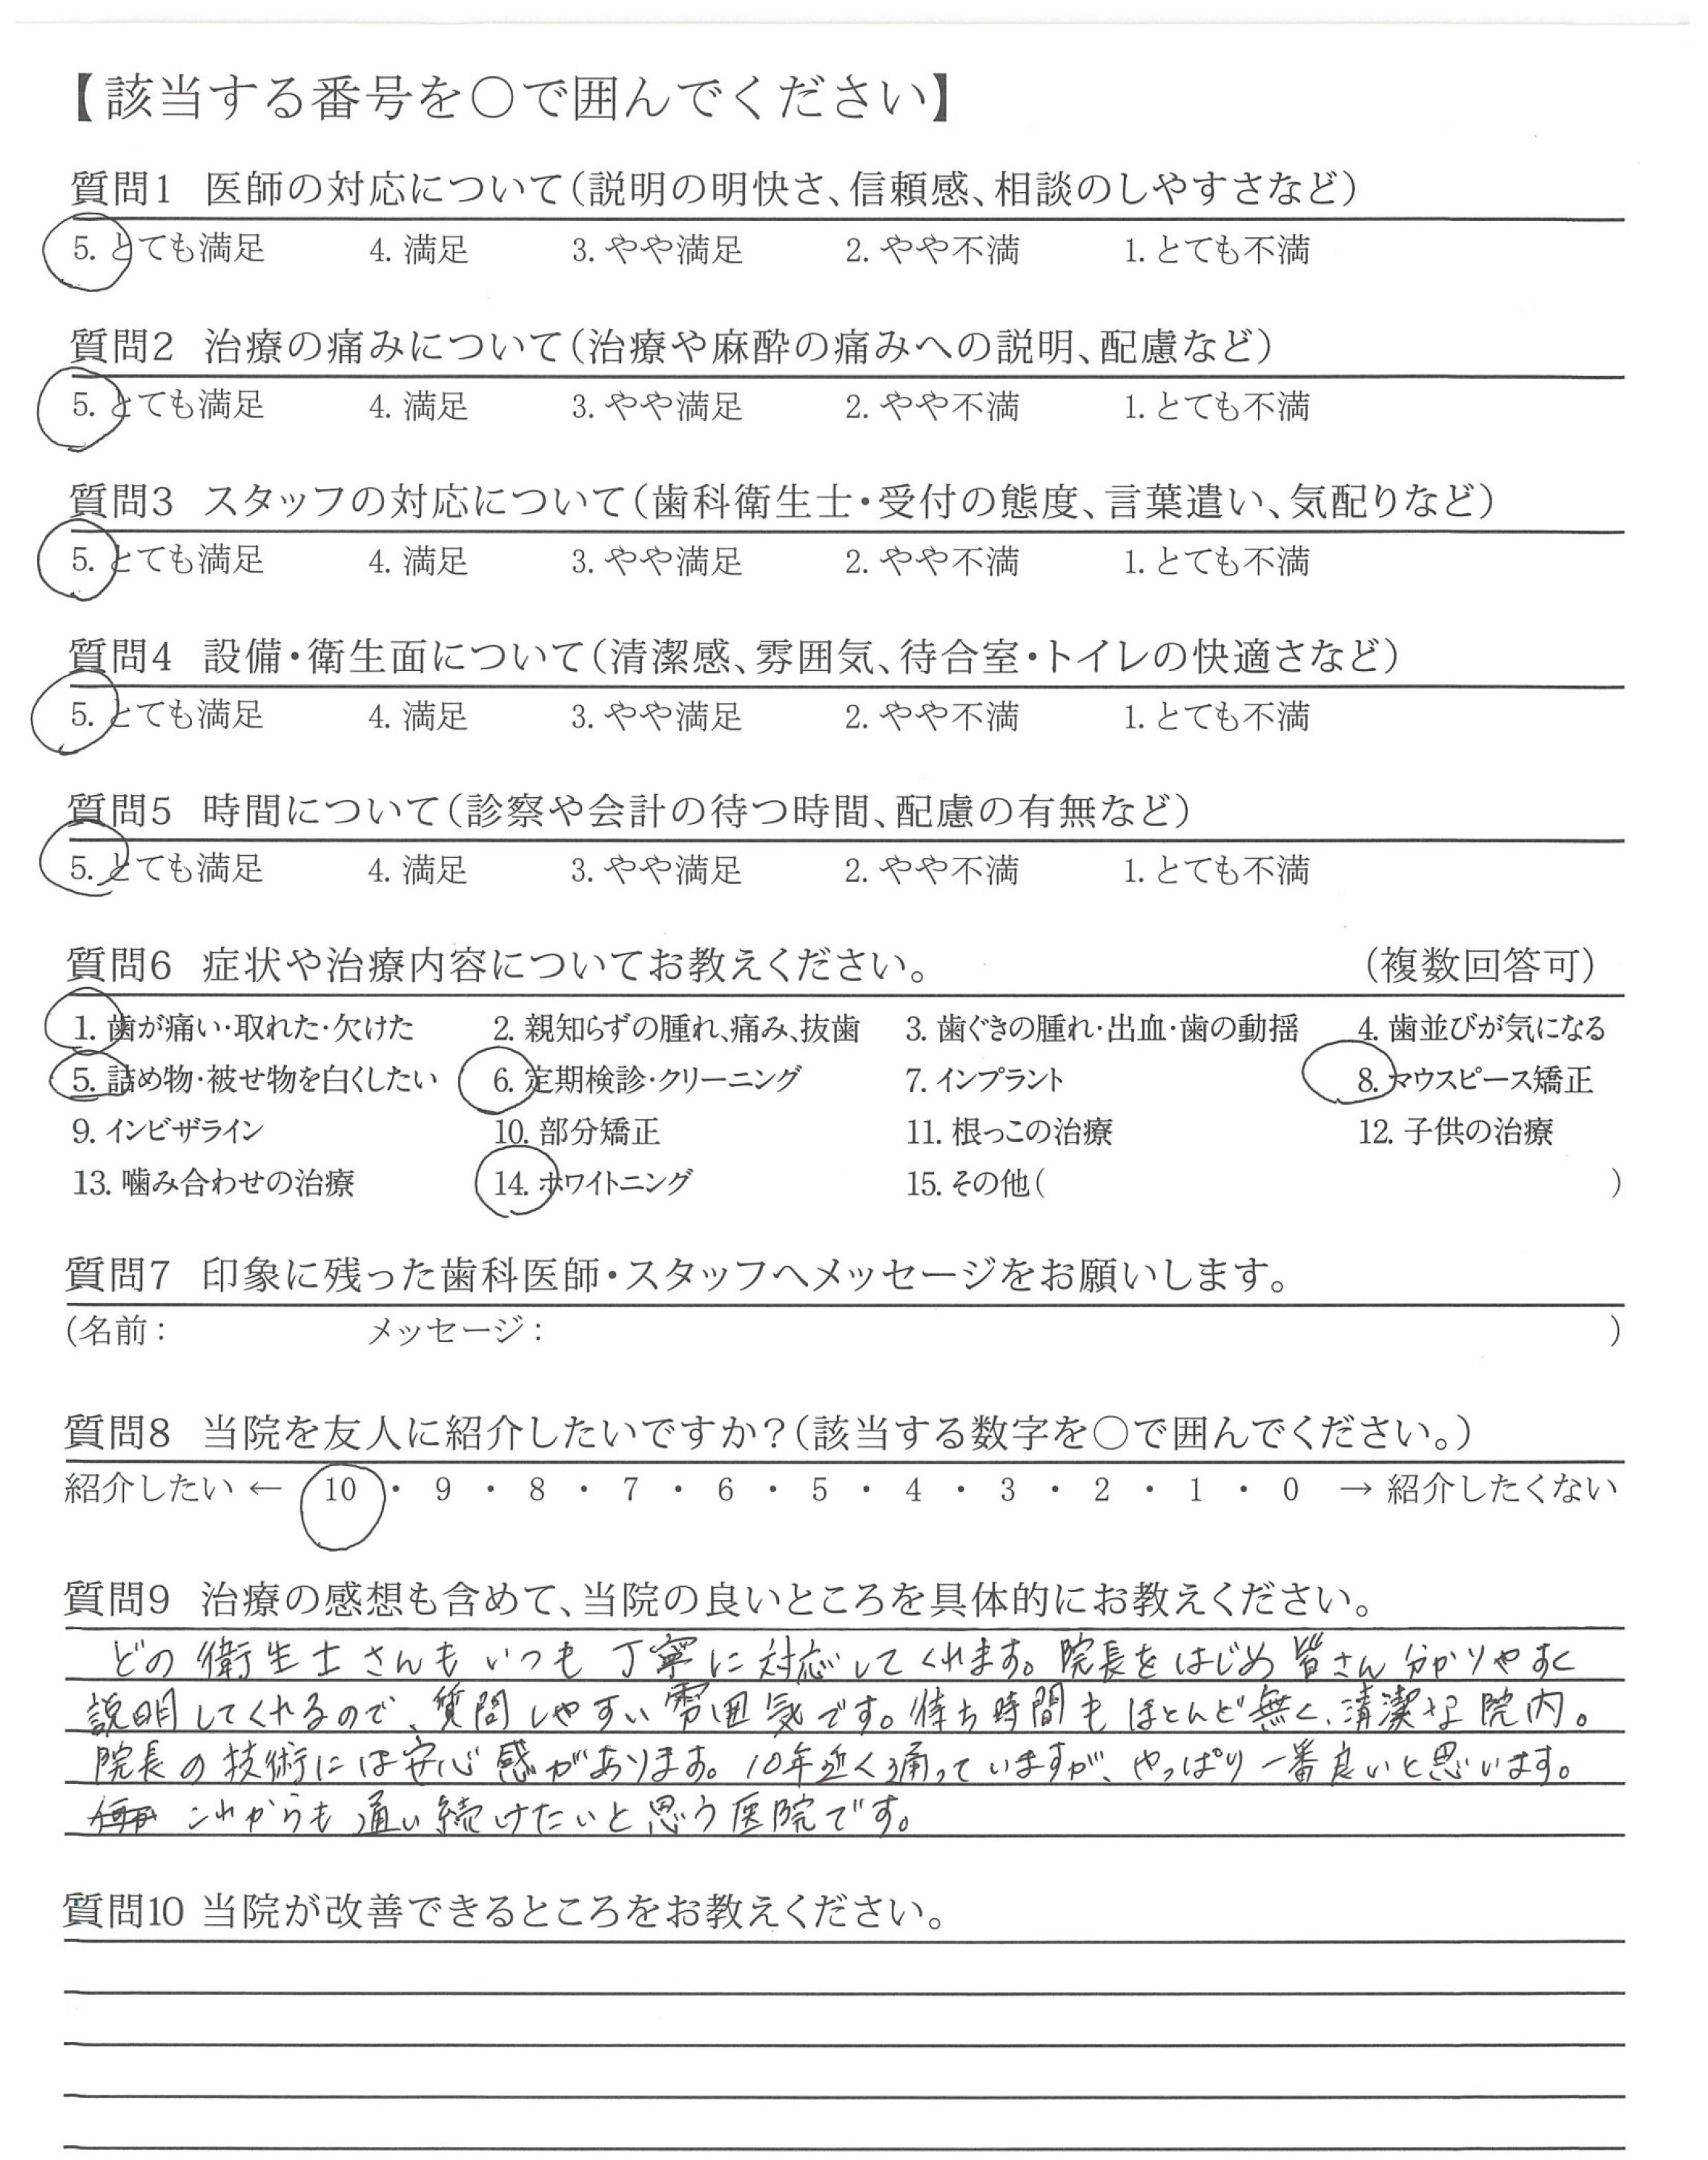 【該当する番号を○で囲んでください】
質問1 医師の対応について(説明の明快さ、信頼感、相談のしやすさなど)
5. とても満足 4. 満足 3. やや満足 2. やや不満 1. とても不満
質問2 治療の痛みについて(治療や麻酔の痛みへの説明、配慮など)
5. とても満足 4. 満足 3. やや満足 2. やや不満 1. とても不満
質問3 スタッフの対応について(歯科衛生士・受付の態度、言葉遣い、気配りなど)
5. とても満足 4. 満足 3. やや満足 2. やや不満 1. とても不満
質問4 設備・衛生面について(清潔感、雰囲気、待合室・トイレの快適さなど)
5. とても満足 4. 満足 3. やや満足 2. やや不満 1. とても不満
質問5 時間について(診察や会計の待つ時間、配慮の有無など)
5. とても満足 4. 満足 3. やや満足 2. やや不満 1. とても不満
質問6 症状や治療内容についてお教えください。 (複数回答可)
1. 歯が痛い・取れた・欠けた 2. 親知らずの腫れ、痛み、抜歯 3. 歯ぐきの腫れ・出血・歯の動揺 4. 歯並びが気になる
5. 詰め物・被せ物を白くしたい 6. 定期検診・クリーニング 7. インプラント 8. マウスピース矯正
9. インビザライン 10. 部分矯正 11. 根っこの治療 12. 子供の治療
13. 噛み合わせの治療 14. ホワイトニング 15. その他( )
質問7 印象に残った歯科医師・スタッフへメッセージをお願いします。
(名前: メッセージ: )
質問8 当院を友人に紹介したいですか?(該当する数字を○で囲んでください。)
紹介したい ← 10 ・ 9 ・ 8 ・ 7 ・ 6 ・ 5 ・ 4 ・ 3 ・ 2 ・ 1 ・ 0 → 紹介したくない
質問9 治療の感想も含めて、当院の良いところを具体的にお教えください。
どの衛生士さんもいつも丁寧に対応してくれます。院長をはじめ皆さん分かりやすく
説明してくれるので、質問しやすい雰囲気です。待ち時間もほとんど無く、清潔な院内。
院長の技術には安心感があります。10年近く通っていますが、やっぱり一番良いと思います。
これからも通い続けたいと思う医院です。
質問10 当院が改善できるところをお教えください。